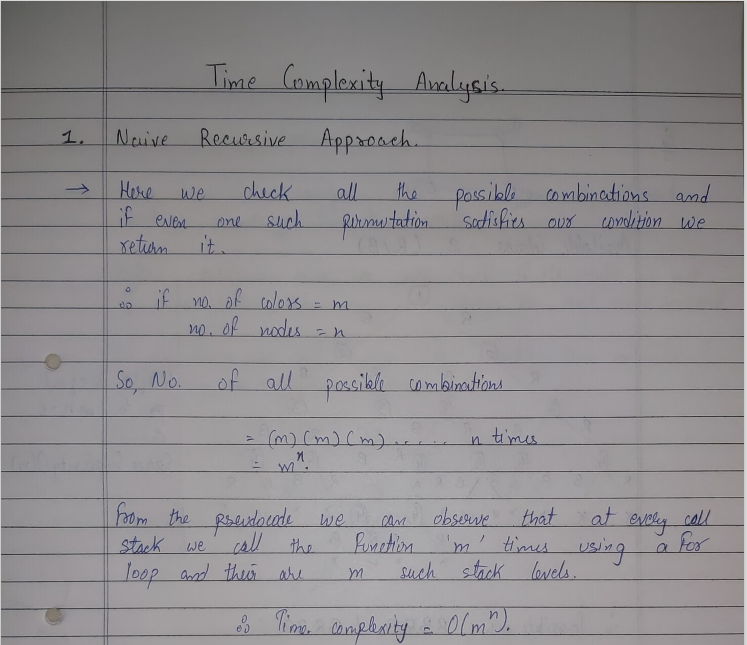 Time Complexity Analysis.
1. Naive Recursive Approach.
→ Here we check all the possible combinations and
if even one such permutation satisfies our condition we
return it.
∴ if no. of colors = m
no. of nodes = n
So, No. of all possible combinations
= (m) (m) (m) ...... n times
= mⁿ.
from the pseudocode we can observe that at every call
stack we call the function 'm' times using a for
loop and their are m such stack levels.
∴ Time complexity = O(mⁿ).